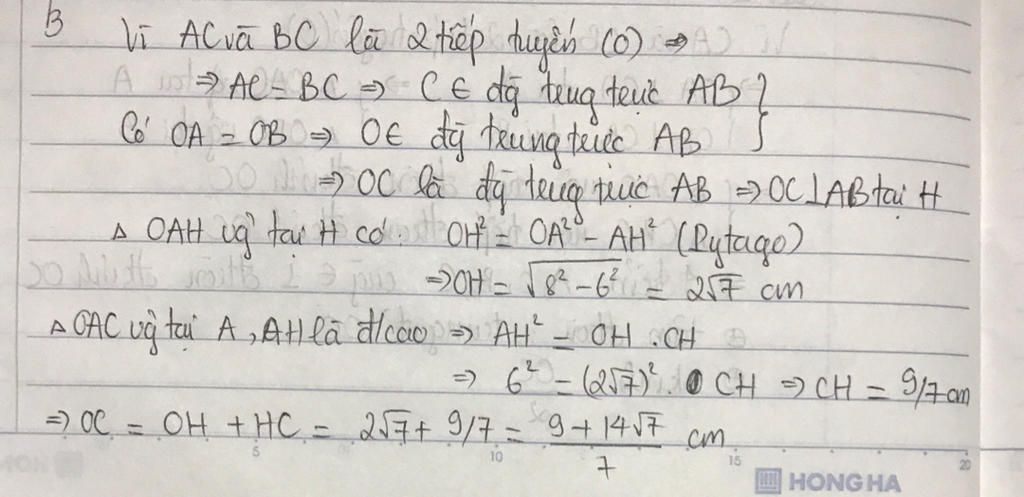 B
Vì AC và BC là 2 tiếp tuyến (O) ⇒
⇒ AC = BC ⇒ C ∈ đg trung trực AB }
Có OA = OB ⇒ O ∈ đg trung trực AB
⇒ OC là đg trung trực AB ⇒ OC ⊥ AB tại H
Δ OAH vg tại H có: OH² = OA² - AH² (Pytago)
⇒ OH = √(8² - 6²) = 2√7 cm
Δ OAC vg tại A, AH là đ/cao ⇒ AH² = OH . CH
⇒ 6² = (2√7)² . CH ⇒ CH = 9/7 cm
⇒ OC = OH + HC = 2√7 + 9/7 = (9 + 14√7)/7 cm
5 10 15 20
HONG HA